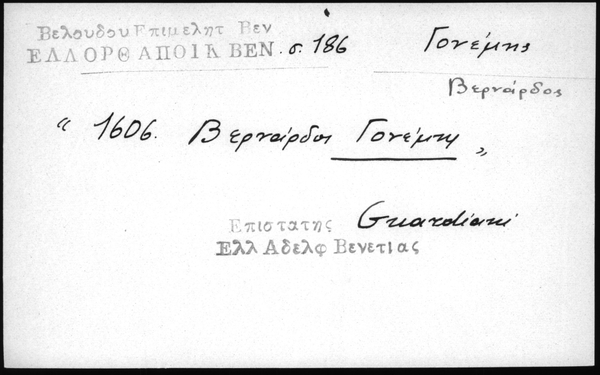 Βελουδου Επιμελητ Βεν
ΕΛΛΟΡΘ ΑΠΟΙΚ ΒΕΝ. σ. 186 Γονέμης
Βερνάρδος
“ 1606. Βερνάρδος Γονέμης „
Επιστατης Guardiani
Ελλ Αδελφ Βενετιας